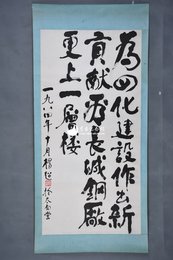 為四化建設作出新
貢献長城鋼廠
更上一層楼
一九八四年十月楊超